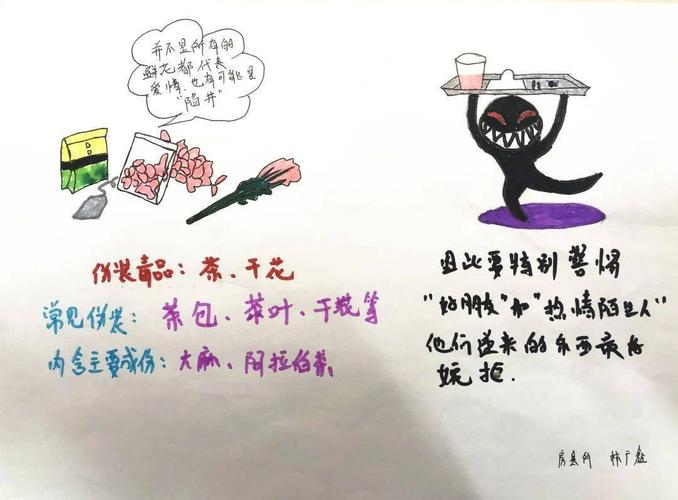 并不是所有的
鲜花都代表
爱情.也有可能是
"陷井"
伪装毒品：茶、干花
常见伪装：茶包、茶叶、干花等
内含主要成份：大麻、阿拉伯茶
因此要特别警惕
"好朋友"和"热情陌生人"
他们送来的东西最好
婉拒.
房县所